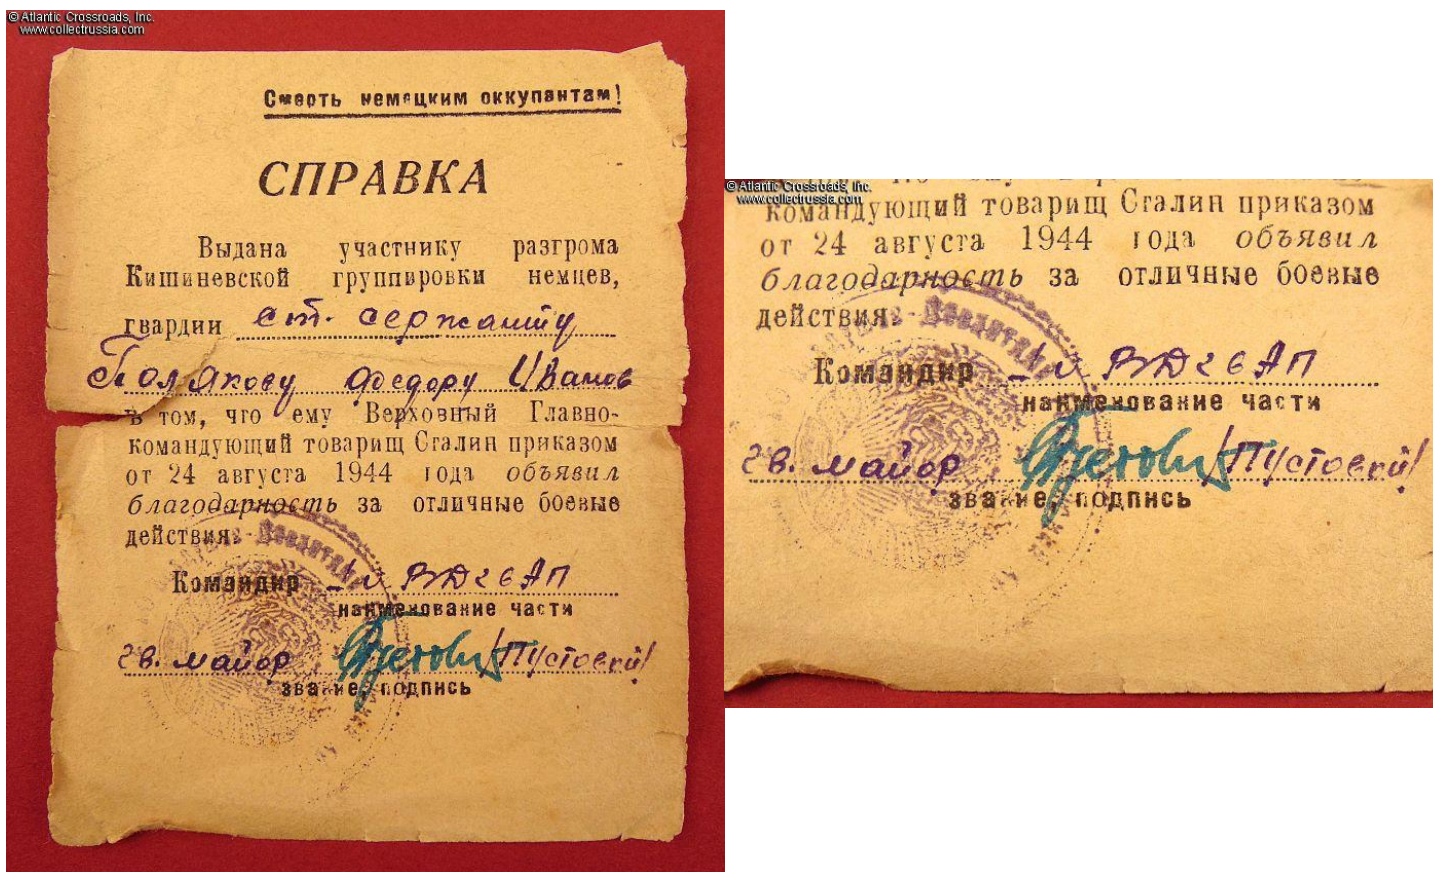 © Atlantic Crossroads, Inc.
www.collectrussia.com
Смерть немецким оккупантам!
СПРАВКА
Выдана участнику разгрома
Кишиневской группировки немцев,
гвардии ст. сержанту
Полякову Федору Иванов
в том, что ему Верховный Главно-
командующий товарищ Сталин приказом
от 24 августа 1944 года объявил
благодарность за отличные боевые
действия.
Командир АП
наименование части
гв. майор /Пустовой/
звание, подпись
© Atlantic Crossroads, Inc.
www.collectrussia.com
командующий товарищ Сталин приказом
от 24 августа 1944 года объявил
благодарность за отличные боевые
действия.
Командир АП
наименование части
гв. майор /Пустовой/
звание, подпись